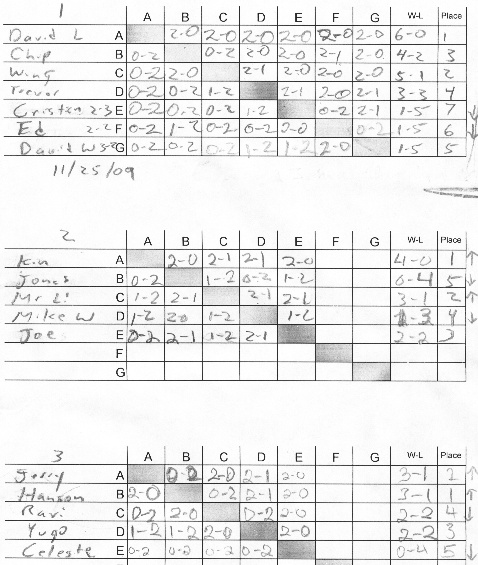 1 A B C D E F G W-L Place
David L A 2-0 2-0 2-0 2-0 2-0 2-0 6-0 1
Chip B 0-2 0-2 2-0 2-0 2-1 2-0 4-2 3
Wing C 0-2 2-0 2-1 2-0 2-0 2-0 5-1 2
Trevor D 0-2 0-2 1-2 2-1 2-0 2-1 3-3 4
E 0-2 0-2 0-2 1-2 0-2 2-1 1-5 7
Ed 2-2 F 0-2 1-2 0-2 0-2 2-0 0-2 1-5 6
David W G 0-2 0-2 0-2 1-2 1-2 2-0 1-5 5
11/25/09
2 A B C D E F G W-L Place
Ken A 2-0 2-1 2-1 2-0 4-0 1
Jones B 0-2 1-2 0-2 1-2 0-4 5
Mr Li C 1-2 2-1 2-1 2-1 3-1 2
Mike W D 1-2 1-2 1-2 1-3 4
Joe E 0-2 2-1 1-2 2-1 2-2 3
F
G
3 A B C D E F G W-L Place
Jerry A 2-0 2-1 2-0 3-1 2
Hanson B 2-0 0-2 2-1 2-0 3-1 1
Ravi C 0-2 2-0 0-2 2-0 2-2 4
Yugo D 1-2 1-2 2-0 2-0 2-2 3
Celeste E 0-2 0-2 0-2 0-2 0-4 5